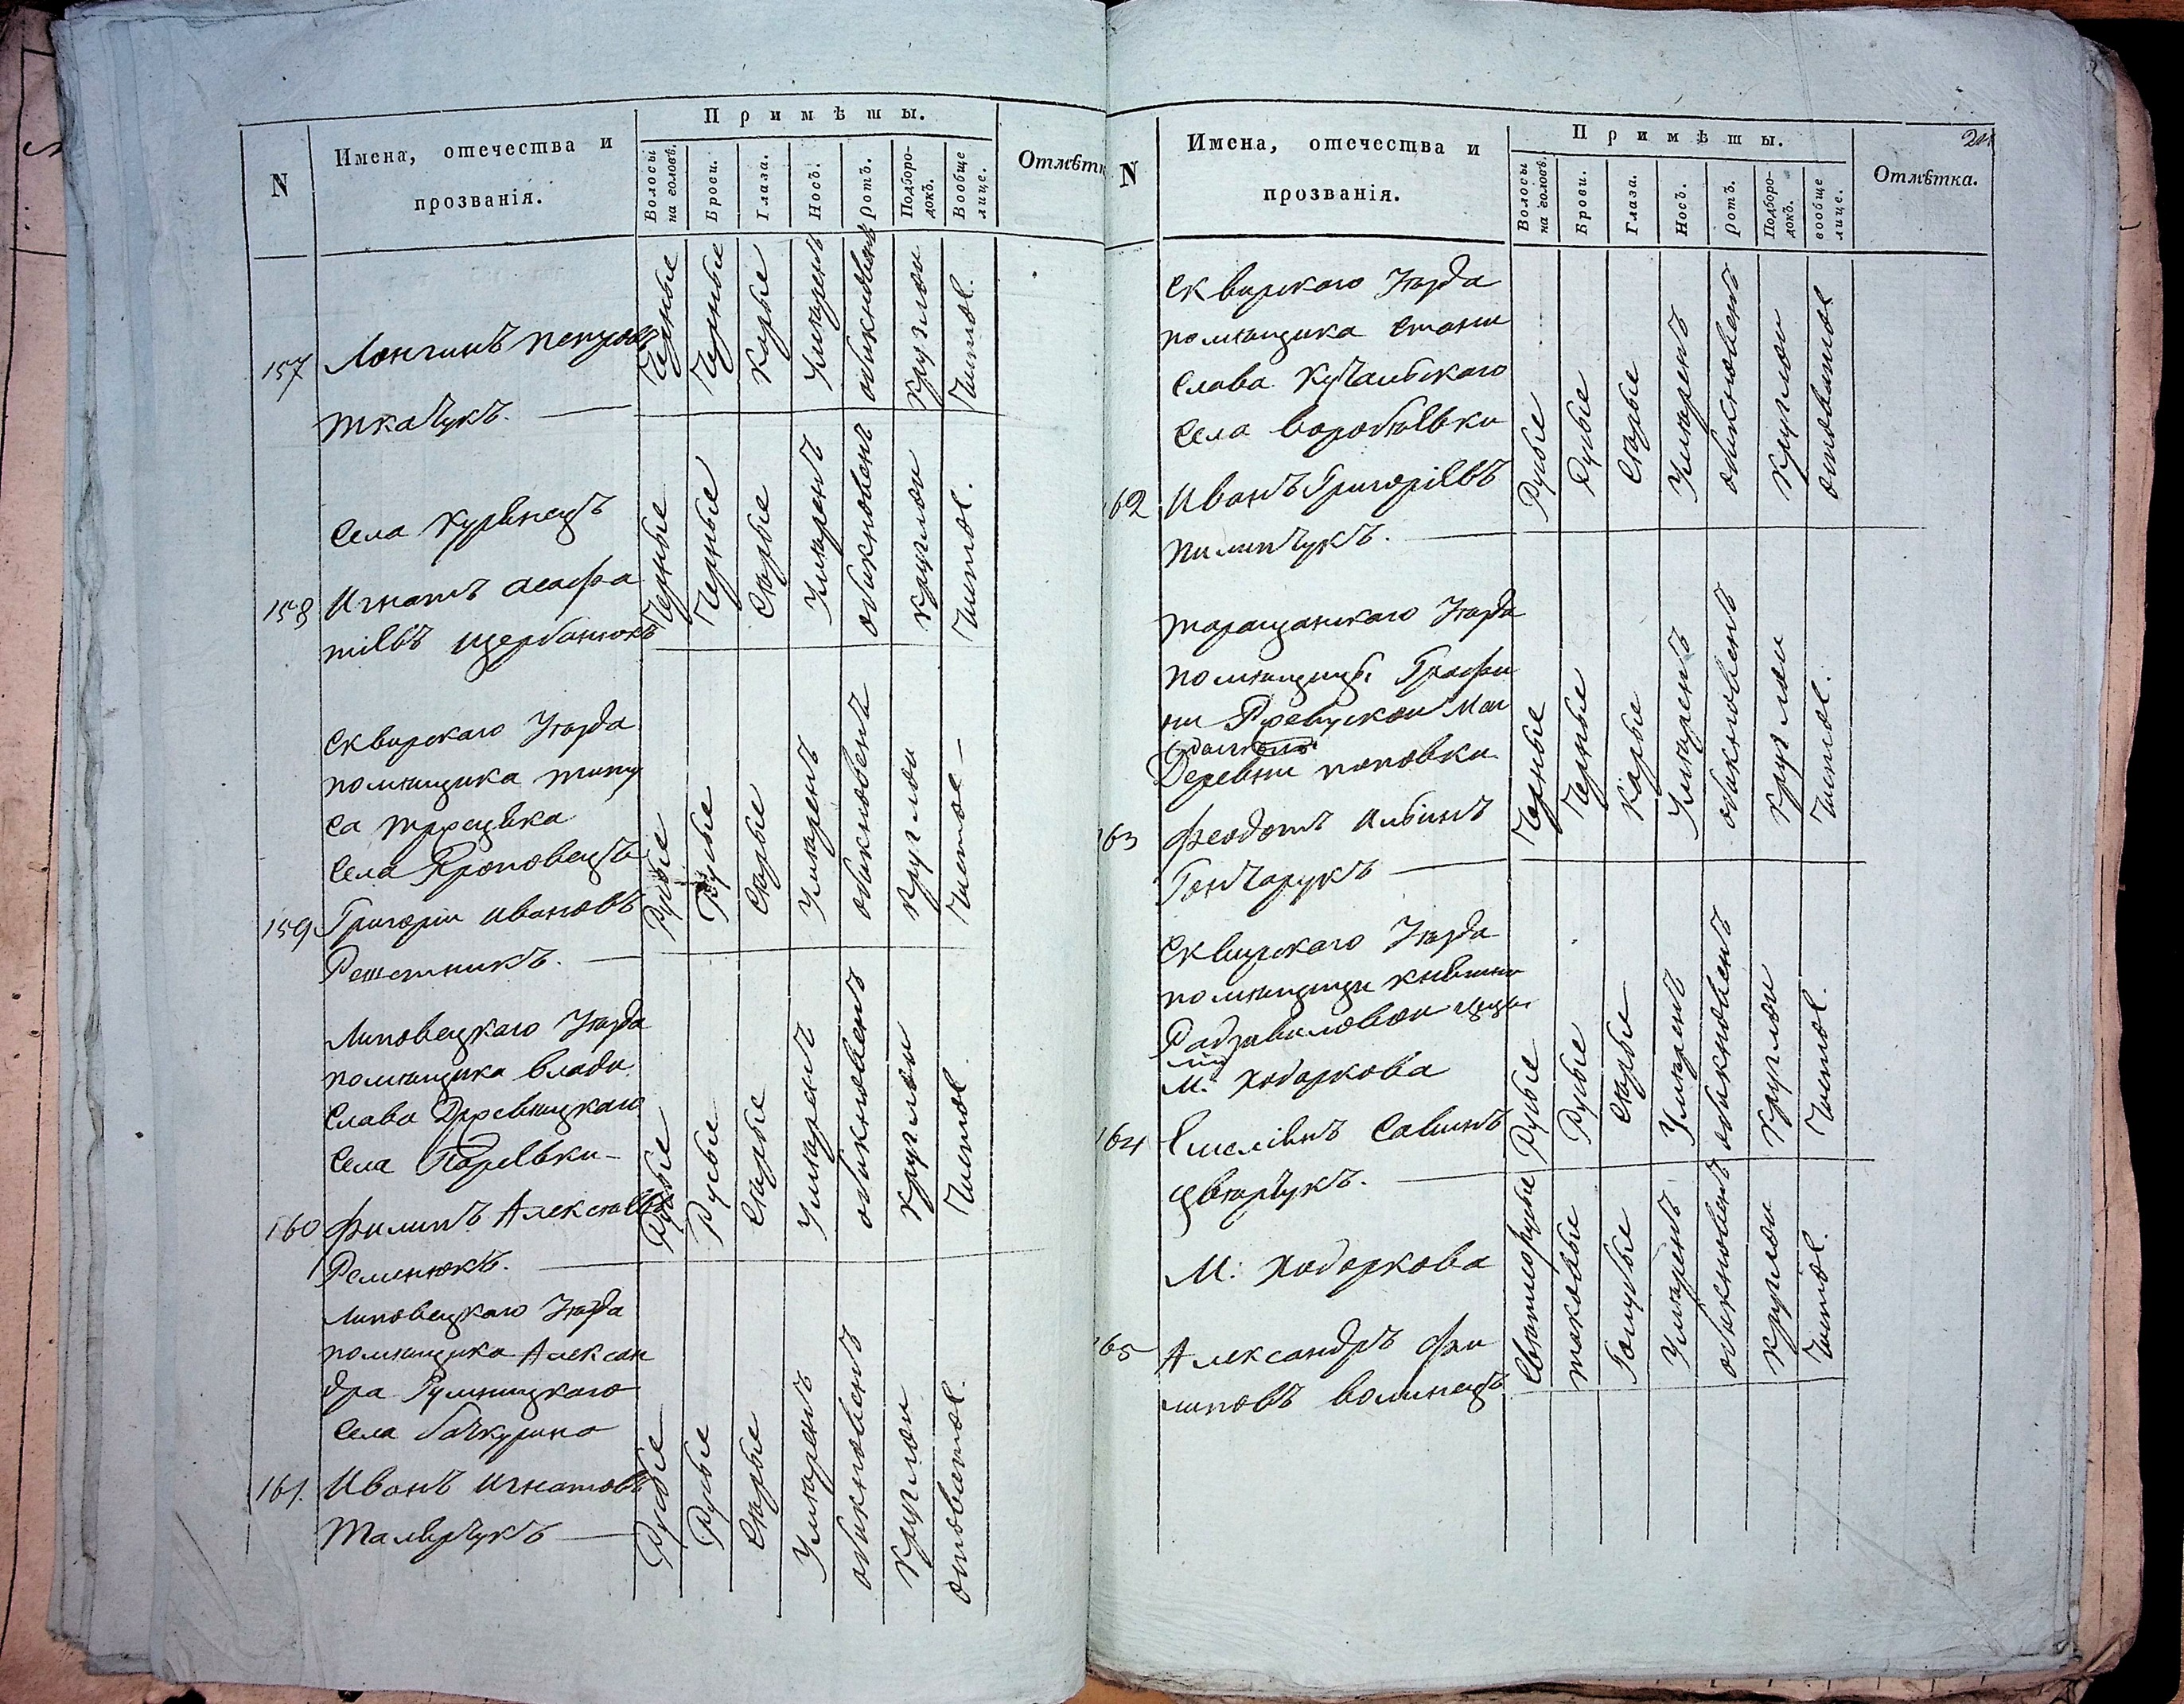 N
Имена, отечества и
прозванія.
Примѣты.
Волосы на головѣ.
Брови.
Глаза.
Носъ.
ротъ.
Подборо-
докъ.
Вообще
лице.
Отмѣтк
157 Лонгинъ Петровъ
Ткачукъ.
Черные Черные Карые Умѣренъ обикновенъ Круглои Чистое.
Села Куринецъ
158 Игнатъ
тіевъ Щербанюкъ
Черные Черные Сѣрые Умѣренъ обикновенъ Круглои Чистое.
Сквирскаго Уѣзда
помѣщика
Села
159 Григоріи Ивановъ
Решетникъ.
Русые Русые Сѣрые Умѣренъ обикновенъ Круглои Чистое
Липовецкаго Уѣзда
помѣщика Влади
слава
Села
160 Филипъ Алексѣевъ
Ременюкъ.
Русые Русые Сѣрые Умѣренъ обикновенъ Круглои Чистое
Липовецкаго Уѣзда
помѣщика Алексан
дра
Села Бачкурина
161. Иванъ Игнатовъ
Русые Русые Сѣрые Умѣренъ обикновенъ Круглои
N
Имена, отечества и
прозванія.
Примѣты.
Волосы на головѣ.
Брови.
Глаза.
Носъ.
ротъ.
Подборо-
докъ.
вообще
лице.
Отмѣтка.
Сквирскаго Уѣзда
помѣщика Стани
слава
Села Воробіевки
162 Иванъ Григоріевъ
Пилипчукъ.
Русые Русые Сѣрые Умѣренъ обикновенъ Круглои
Таращанскаго Уѣзда
помѣщицы Графи
ни
Деревни Поповки
163 Феодотъ
Гончарукъ
Черные Черные Карые Умѣренъ обикновенъ Круглои Чистое.
Сквирскаго Уѣзда
помѣщици
Радзивиловои
М: Ходоркова
164 Савинъ
Русые Русые Сѣрые Умѣренъ обикновенъ Круглои Чистое.
М: Ходоркова
165 Александръ Фи
липовъ Волинецъ
Свѣтлорусые таковые Голубые Умѣренъ обикновенъ Круглои Чистое.